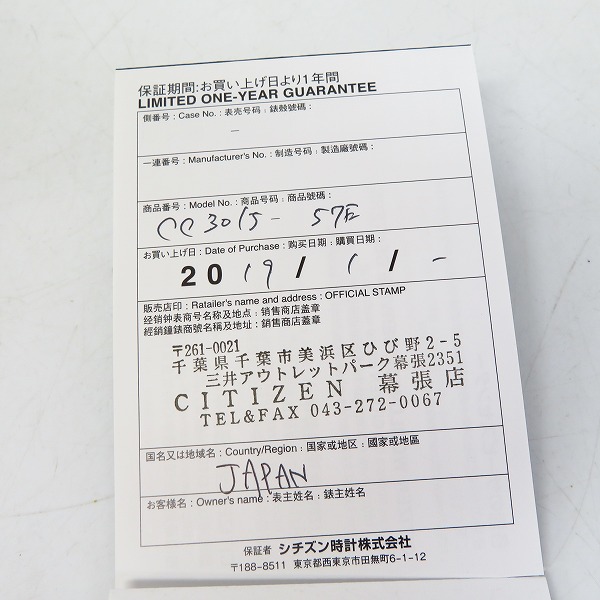 保証期間:お買い上げ日より1年間
LIMITED ONE-YEAR GUARANTEE
側番号:Case No.:表壳号码:錶殼號碼:
—
一連番号:Manufacturer's No.:制造号码:製造廠號碼:
商品番号:Model No.:商品号码:商品號碼:
CC3015-57E
お買い上げ日:Date of Purchase:购买日期:購買日期:
2019/1/-
販売店印:Ratailer's name and address:OFFICIAL STAMP
经销钟表商号名称及地点:销售商店盖章
經銷鐘錶商號名稱及地址:銷售商店蓋章
〒261-0021
千葉県千葉市美浜区ひび野2-5
三井アウトレットパーク幕張2351
CITIZEN 幕張店
TEL&FAX 043-272-0067
国名又は地域名:Country/Region:国家或地区:國家或地區
JAPAN
お客様名:Owner's name:表主姓名:錶主姓名
保証者 シチズン時計株式会社
〒188-8511 東京都西東京市田無町6-1-12